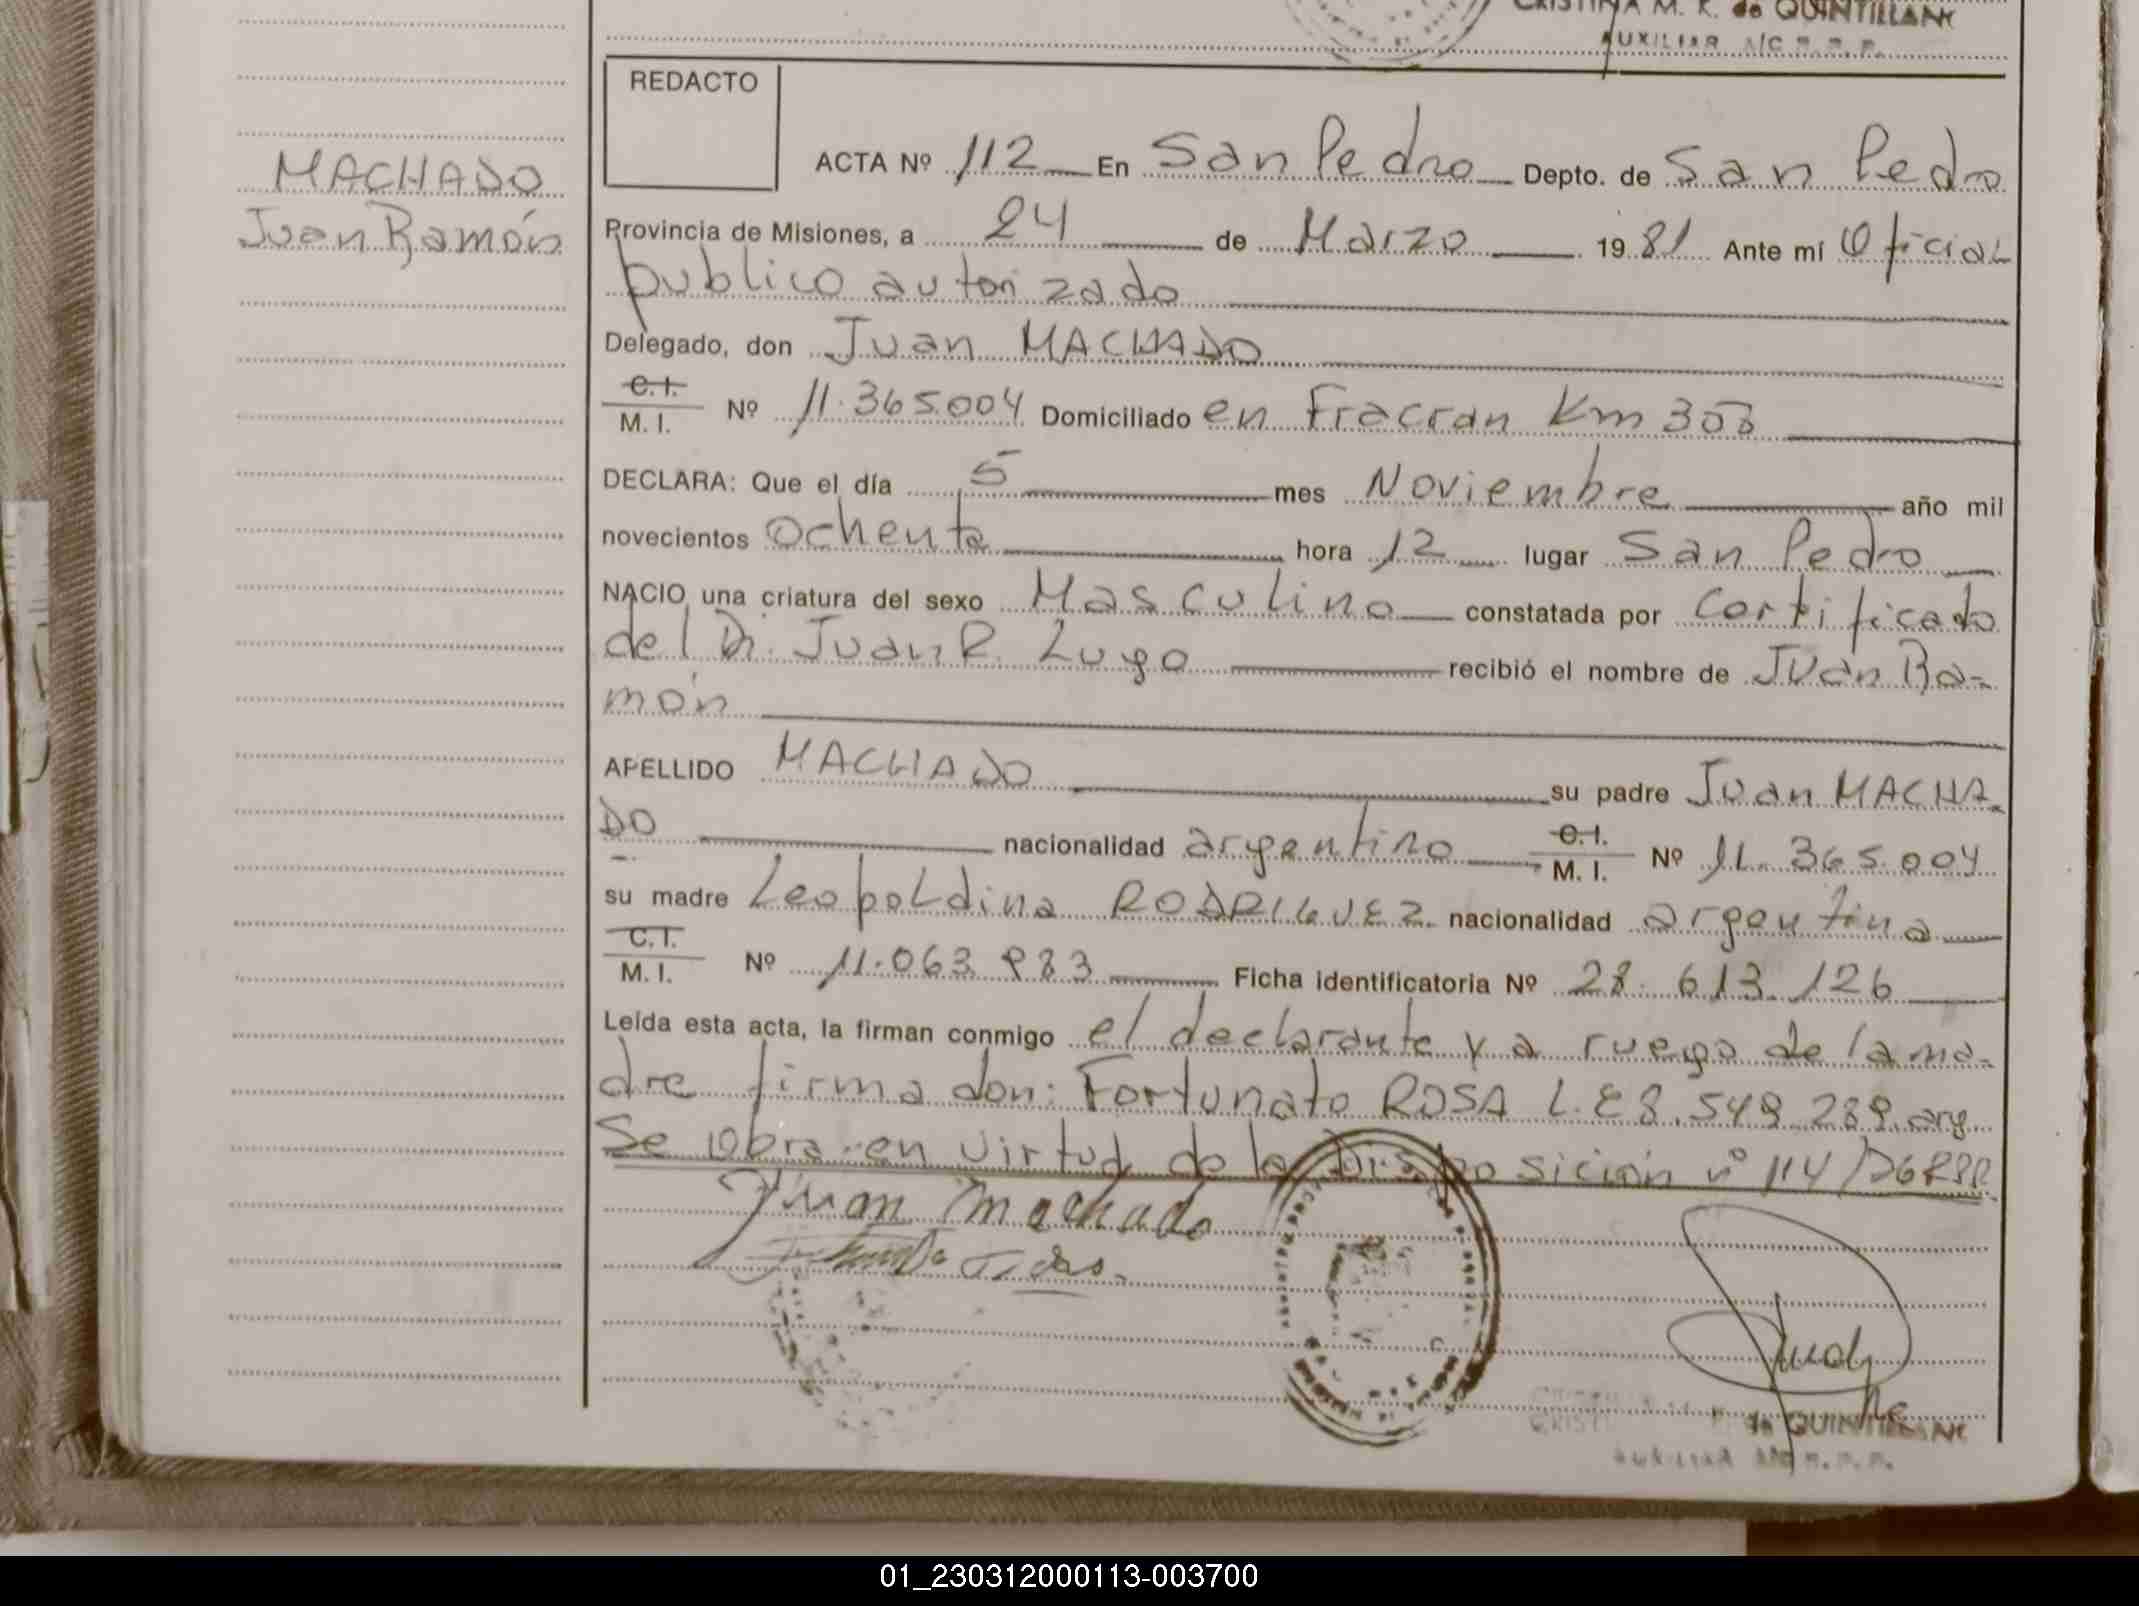 CRISTINA M. R. de QUINTILLAN
AUXILIAR A/C
REDACTO
ACTA Nº 112 En San Pedro Depto. de San Pedro
MACHADO
Juan Ramón
Provincia de Misiones, a 24 de Marzo 1981 Ante mí Oficial
publico autorizado
Delegado, don Juan MACHADO
C.I.
M. I. Nº 11.365.004 Domiciliado en Fracran Km 303
DECLARA: Que el día 5 mes Noviembre año mil
novecientos ochenta hora 12 lugar San Pedro
NACIO una criatura del sexo Masculino constatada por Certificado
del Dr. Juan R. Lugo recibió el nombre de Juan Ra-
món
APELLIDO MACHADO su padre Juan MACHA-
DO nacionalidad argentino C.I. M. I. Nº 11.365.004
su madre Leopoldina RODRIGUEZ nacionalidad argentina
C.I.
M. I. Nº 11.063.983 Ficha identificatoria Nº 28.613.126
Leída esta acta, la firman conmigo el declarante y a ruego de la ma-
dre firma don: Fortunato ROSA L.E 8.549.289 arg.
Se obra en virtud de la Disposición nº 114/
Juan Machado
QUINTILLAN
AUXILIAR
01_230312000113-003700